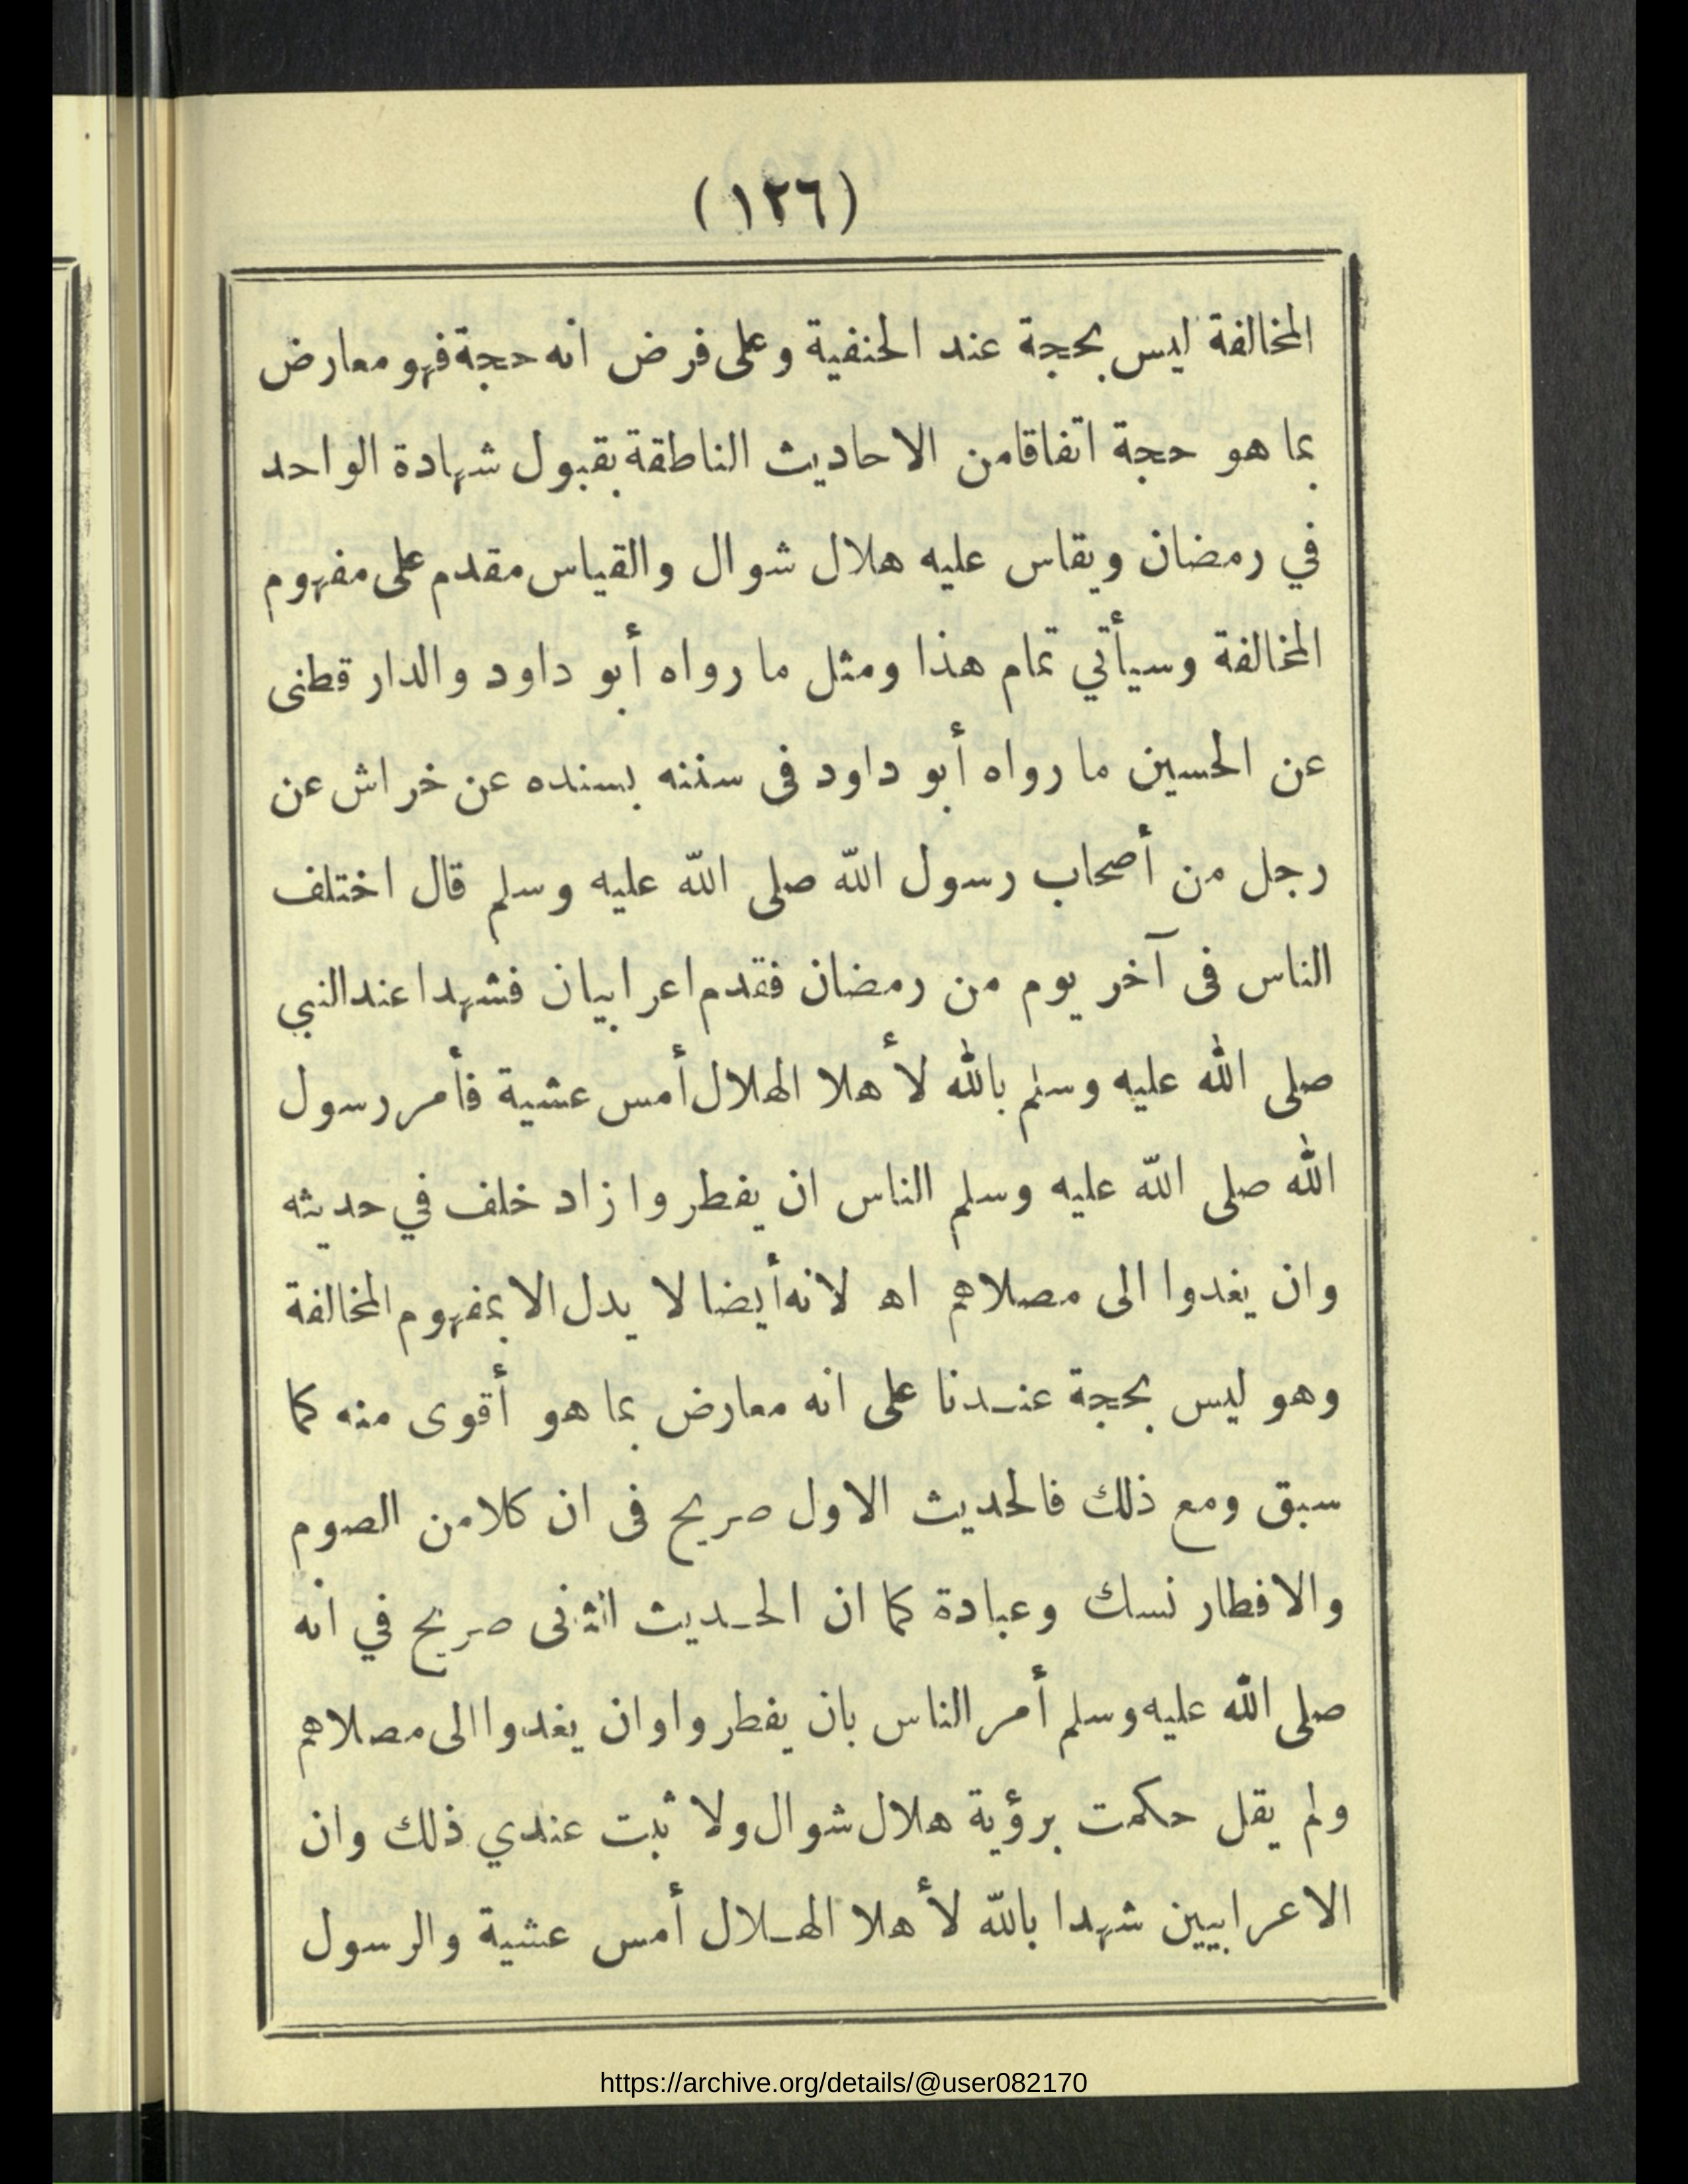 (١٢٦)
المخالفة ليس بحجة عند الحنفية وعلى فرض انه حجة فهو معارض
بما هو حجة اتفاقا من الاحاديث الناطقة بقبول شهادة الواحد
في رمضان ويقاس عليه هلال شوال والقياس مقدم على مفهوم
المخالفة وسيأتي تمام هذا ومثل ما رواه أبو داود والدار قطنى
عن الحسين ما رواه أبو داود فى سننه بسنده عن خراش عن
رجل من أصحاب رسول الله صلى الله عليه وسلم قال اختلف
الناس فى آخر يوم من رمضان فقدم اعرابيان فشهدا عند النبي
صلى الله عليه وسلم بالله لأهلا الهلال أمس عشية فأمر رسول
الله صلى الله عليه وسلم الناس ان يفطروا زاد خلف في حديثه
وان يغدوا الى مصلاهم اه لانه أيضا لا يدل الا بمفهوم المخالفة
وهو ليس بحجة عنـدنا على انه معارض بما هو أقوى منه كما
سبق ومع ذلك فالحديث الاول صريح فى ان كلا من الصوم
والافطار نسك وعبادة كما ان الحـديث الثانى صريح في انه
صلى الله عليه وسلم أمر الناس بان يفطروا وان يغدوا الى مصلاهم
ولم يقل حكمت برؤية هلال شوال ولا ثبت عندي ذلك وان
الاعرابيين شهدا بالله لأهلا الهـلال أمس عشية والرسول
https://archive.org/details/@user082170